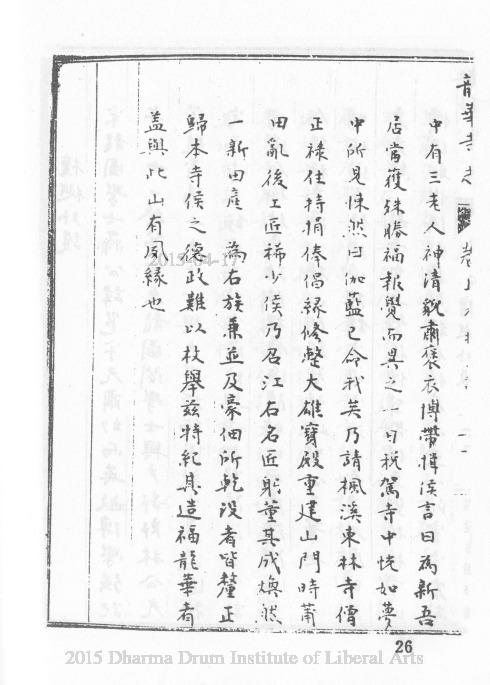 中有三老人神清貌肅褒衣博帶揖侯言曰為新吾
居當獲殊勝福報覺而異之一日稅駕寺中恍如夢
中所見悚然曰伽藍已命我矣乃請楓溪東林寺僧
正祿住持捐俸倡緣修整大雄寶殿重建山門時莆
田亂後工匠稀少侯乃召江右名匠躬董其成煥然
一新田產為右族兼並及豪佃所乾沒者皆釐正
歸本寺侯之德政難以枚舉茲特紀其造福龍華者
蓋與此山有夙緣也
26
2015-04-17
2015 Dharma Drum Institute of Liberal Arts